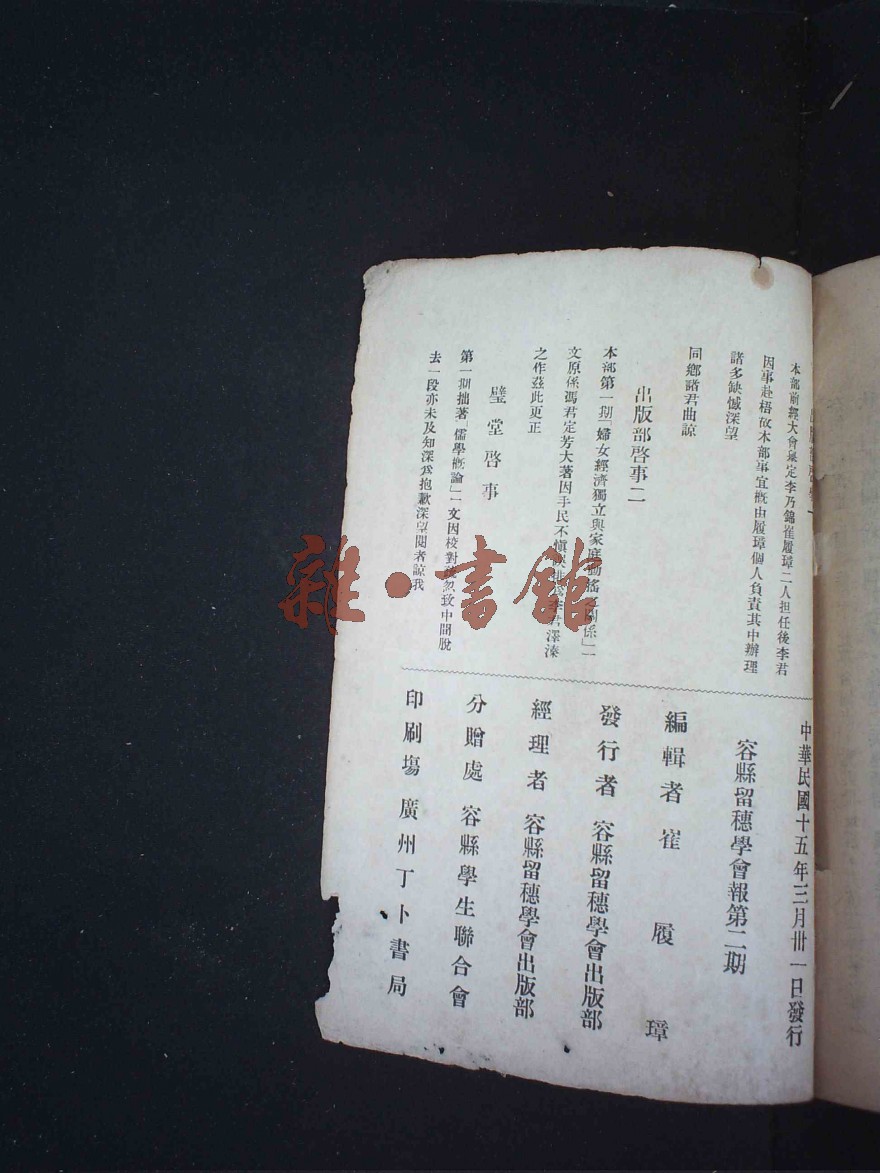 本部前經大會票定李乃錦崔履璋二人担任後李君
因事赴梧故本部事宜概由履璋個人負責其中辦理
諸多缺憾深望
同鄉諸君曲諒
出版部啓事二
本部第一期「婦女經濟獨立與家庭動搖之關係」一
文原係馮君定芳大著因手民不愼李君澤溱
之作茲此更正
璧堂啓事
第一期拙著「儒學槪論」一文因校對忽致中間脫
去一段亦未及知深爲抱歉深望閱者諒我
中華民國十五年三月卅一日發行
容縣留穗學會報第二期
編輯者 崔履璋
發行者 容縣留穗學會出版部
經理者 容縣留穗學會出版部
分贈處 容縣學生聯合會
印刷塲 廣州丁卜書局
雜·書館